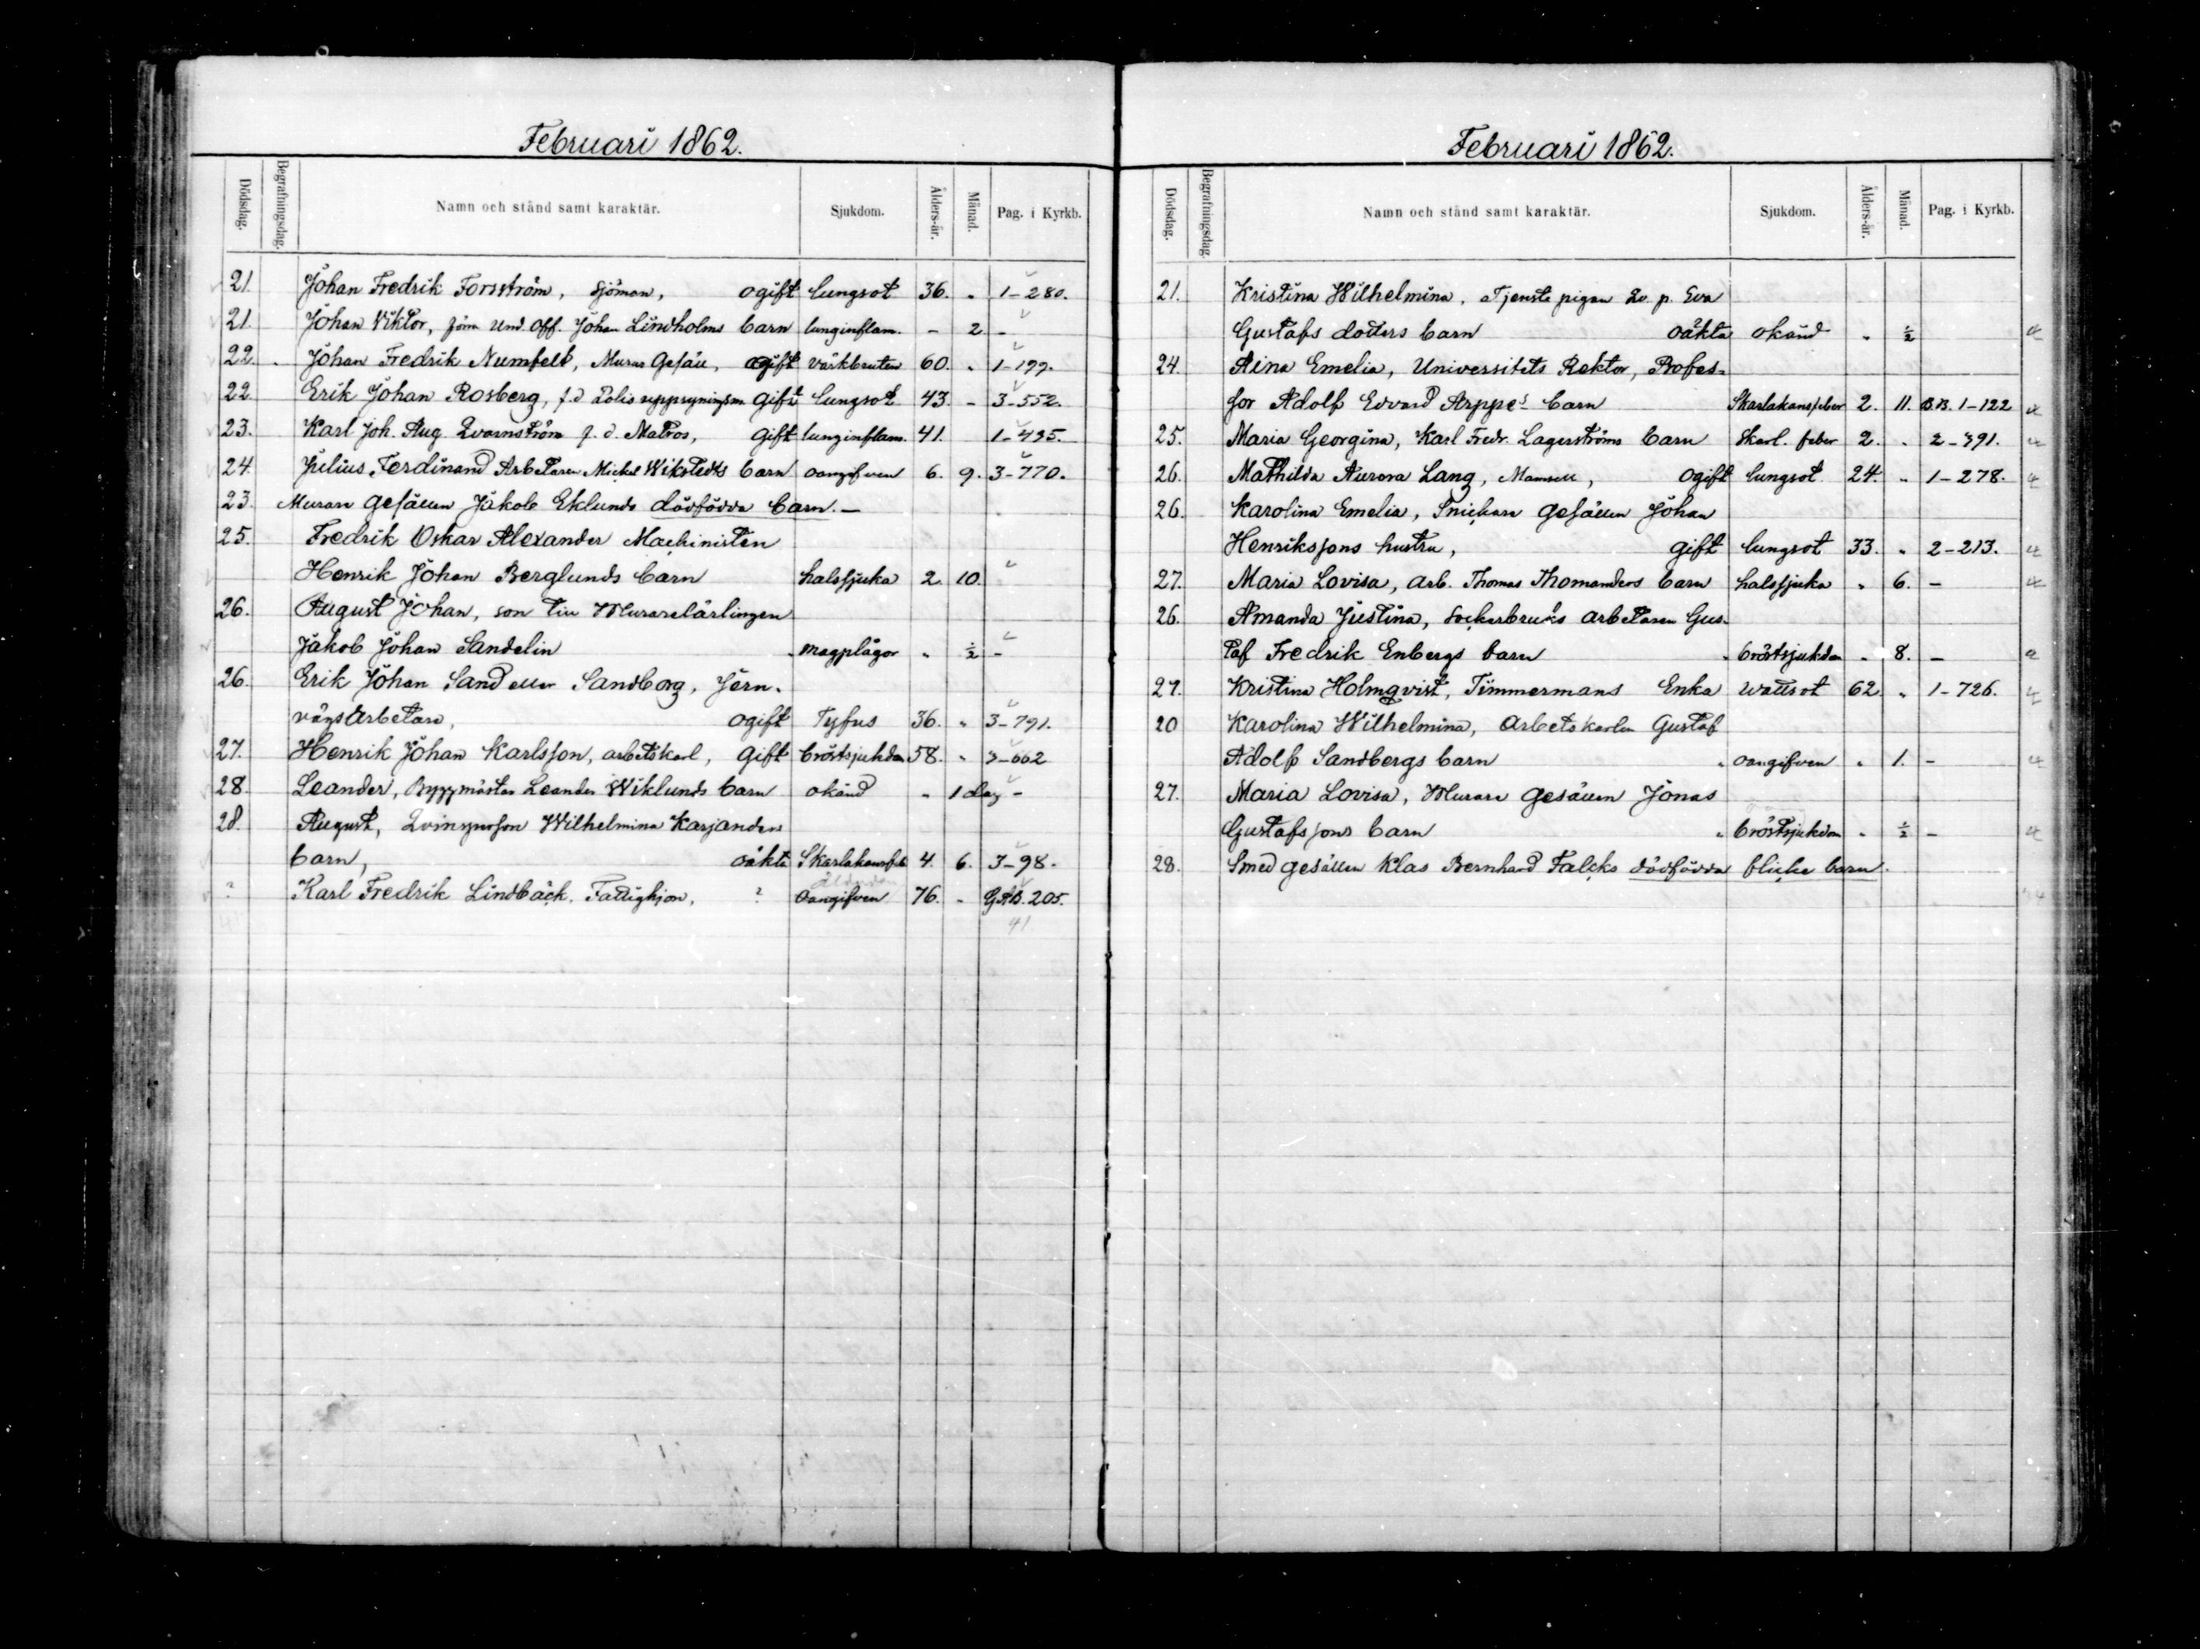 Februari 1862.
Dödsdag. Begrafningsdag. Namn och stånd samt karaktär. Sjukdom. Ålders-år. Månad. Pag. i Kyrkb.
21. Johan Fredrik Forsström, Sjöman, ogift lungsot 36. " 1-280.
21. Johan Viktor, Und. Off. Johan Lindholms barn lunginflam. - 2 -
22. Johan Fredrik Numfelt, Murar Gesäll, ogift värkbruten 60. " 1-199.
22. Erik Johan Rosberg, f.d Polis uppsyningsm. Gift lungsot 43. - 3-552.
23. Karl Joh. Aug. Qvarnström f.d. Matros, Gift lunginflam. 41. 1-495.
24. Julius Ferdinand Arbetaren Mickel Wikstedts barn oangifven 6. 9. 3-770.
23. Murare Gesällen Jakob Eklunds dödfödda barn. -
25. Fredrik Oskar Alexander Machinisten
Henrik Johan Berglunds barn halssjuka 2. 10.
26. August Johan, son till Murarelärlingen
Jakob Johan Sandelin magplågor " ½ -
26. Erik Johan Sand eller Sandborg, Jern-
vägsarbetare, ogift Tyfus 36. " 3-791.
27. Henrik Johan Karlsson, arbetskarl, Gift bröstsjukdom 58. " 3-662
28. Leander, Byggmästar Leander Wiklunds barn okänd " 1 dag -
28. August, Qvinsperson Wilhelmina Karjanders
barn, oäkta Skarlakansfeb. 4. 6. 3-98.
? Karl Fredrik Lindbäck, Fattighjon, ? Oangifven 76. " GAB. 205.
41
Februari 1862.
Dödsdag. Begrafningsdag. Namn och stånd samt karaktär. Sjukdom. Ålders-år. Månad. Pag. i Kyrkb.
21. Kristina Wilhelmina, Tjenste pigan Qv. p. Eva
Gustafs dotters barn oäkta okänd " ½
24. Aina Emelia, Universitets Rektor, Profes-
sor Adolf Edvard Arppes barn Skarlakansfeber 2. 11. B.B. 1-122
25. Maria Georgina, Karl Fredr. Lagerströms barn Skarl. feber 2. " 2-391.
26. Mathilda Aurora Lang, Mamsell, Ogift lungsot 24. " 1-278.
26. Karolina Emelia, Snickare Gesällen Johan
Henrikssons hustru, gift lungsot 33. " 2-213.
27. Maria Lovisa, arb. Thomas Thomanders barn halssjuka " 6. -
26. Amanda Justina, Sockerbruks arbetaren Gus-
taf Fredrik Enbergs barn bröstsjukdom " 8. -
27. Kristina Holmqvist, Timmermans Enka Wattsot 62 " 1-726.
20 Karolina Wilhelmina, Arbetskarlen Gustaf
Adolf Sandbergs barn oangifven " 1. -
27. Maria Lovisa, Murare gesällen Jonas
Gustafssons barn bröstsjukdom " ½ -
28. Smed gesällen Klas Bernhard Falcks dödfödda flicke barn.